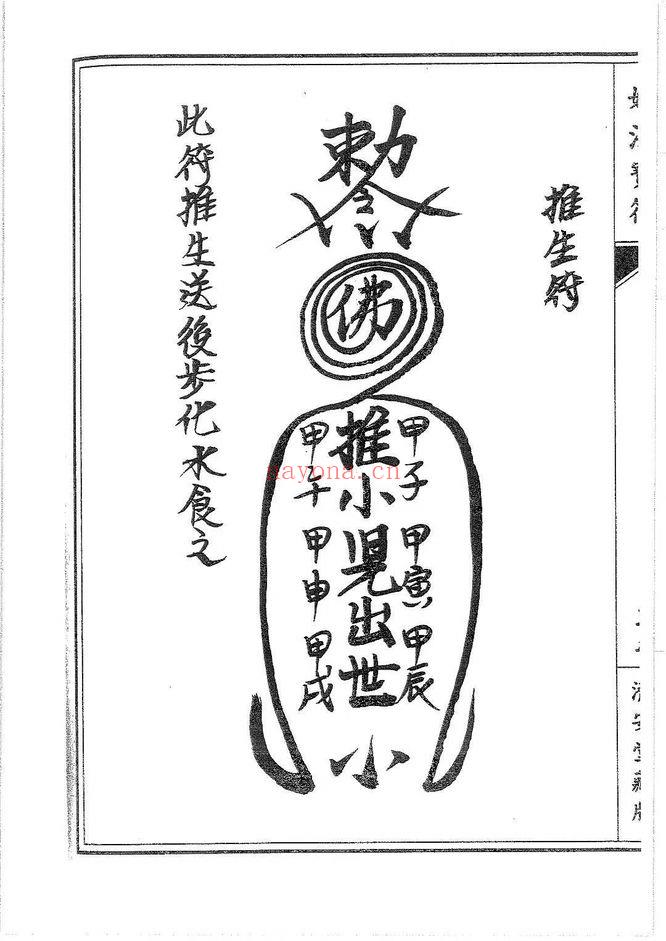 推生符
勅令
佛
甲子 甲寅 甲辰
推小児出世
甲午 甲申 甲戌
小
此符推生送後步化水食之
nayona.cn